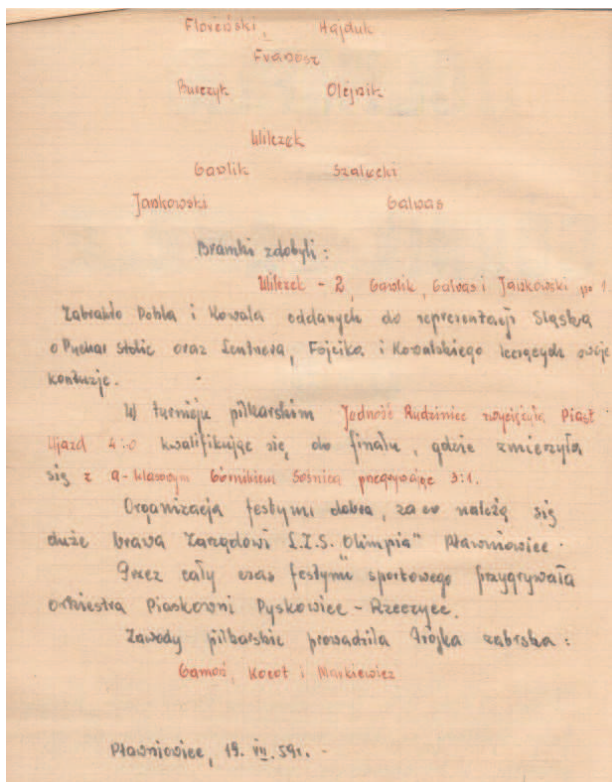 Floreński, Hajduk
Franosz
Burczyk Olejnik
Wilczek
Gawlik Szalecki
Jankowski Galwas
Bramki zdobyli :
Wilczek - 2, Gawlik, Galwas i Jankowski po 1.
Zabrakło Pohla i Kowala oddanych do reprezentacji Śląska
o Puchar Stolic oraz Lentnera, Fojcika i Kowalskiego leczących swoje
kontuzje.
W turnieju piłkarskim Jedność Rudziniec zwyciężyła Piast
Ujazd 4:0 kwalifikując się do finału, gdzie zmierzyła
się z a-klasowym Górnikiem Sośnica przegrywając 3:1.
Organizacja festynu dobra, za co należą się
duże brawa Zarządowi L.Z.S. "Olimpia" Pławniowice.
Przez cały czas festynu sportowego przygrywała
orkiestra Piaskowni Pyskowice - Rzeczyce.
Zawody piłkarskie prowadziła trójka zabrska :
Gamoń, Kocot i Markiewicz
Pławniowice, 19. VII. 59r. -